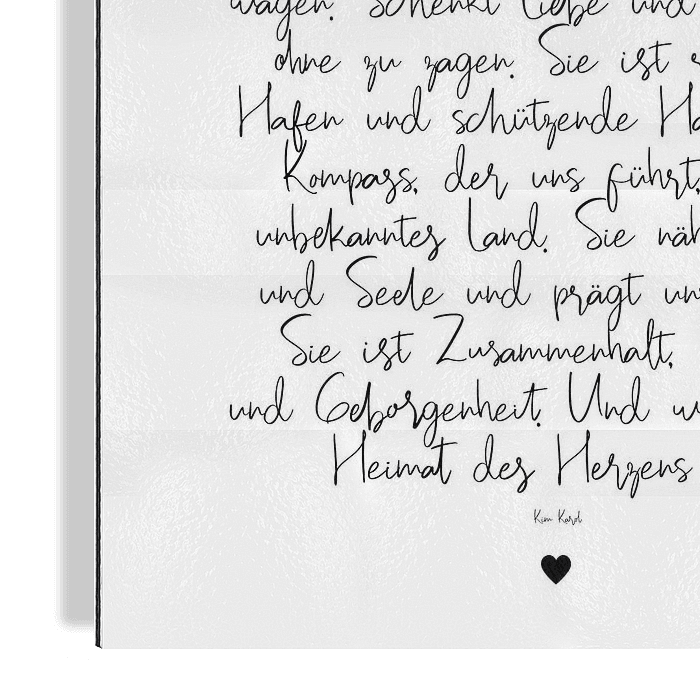 wagen. Schenkt Liebe und
ohne zu zagen. Sie ist
Hafen und schützende
Kompass, der uns führt,
unbekanntes Land. Sie
und Seele und prägt
Sie ist Zusammenhalt,
und Geborgenheit. Und
Heimat des Herzens
Kim Karol